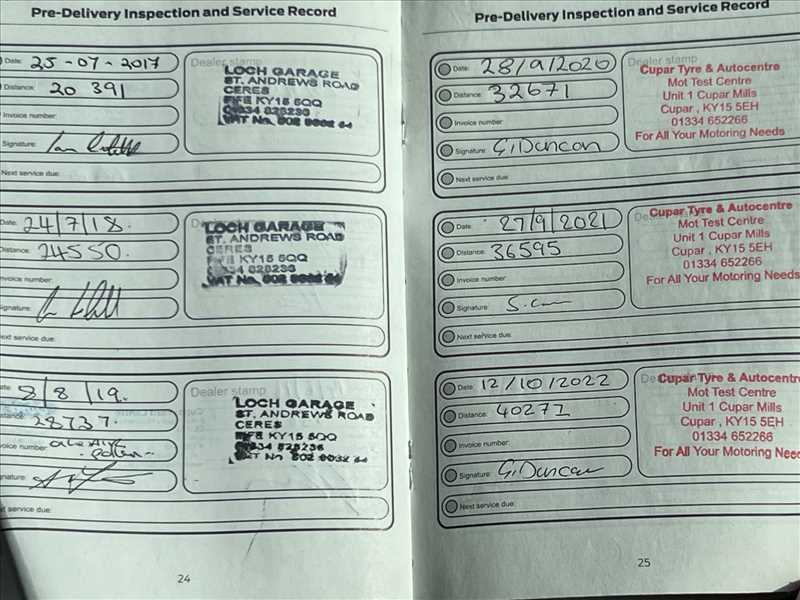 Pre-Delivery Inspection and Service Record
Date: 25-07-2017
Distance: 20 391
Invoice number:
Signature:
Next service due:
Dealer stamp
LOCH GARAGE
ST. ANDREWS ROAD
CERES
FIFE KY15 5QQ
01334 828236
VAT No.
Date: 24/7/18.
Distance: 24550.
Invoice number:
Signature:
Next service due:
LOCH GARAGE
ST. ANDREWS ROAD
CERES
FIFE KY15 5QQ
01334 828236
VAT No.
Date 8/8/19.
Distance: 28737.
Invoice number:
Signature:
Next service due:
Dealer stamp
LOCH GARAGE
ST. ANDREWS ROAD
CERES
FIFE KY15 5QQ
01334 828236
VAT No
24
Pre-Delivery Inspection and Service Record
Date: 28/9/2020
Distance: 32671
Invoice number:
Signature: G. Duncan
Next service due:
Dealer stamp
Cupar Tyre & Autocentre
Mot Test Centre
Unit 1 Cupar Mills
Cupar, KY15 5EH
01334 652266
For All Your Motoring Needs
Date: 27/9/2021
Distance: 36595
Invoice number:
Signature:
Next service due:
Cupar Tyre & Autocentre
Mot Test Centre
Unit 1 Cupar Mills
Cupar, KY15 5EH
01334 652266
For All Your Motoring Needs
Date: 12/10/2022
Distance: 40271
Invoice number:
Signature: G. Duncan
Next service due:
Cupar Tyre & Autocentre
Mot Test Centre
Unit 1 Cupar Mills
Cupar, KY15 5EH
01334 652266
For All Your Motoring Need
25